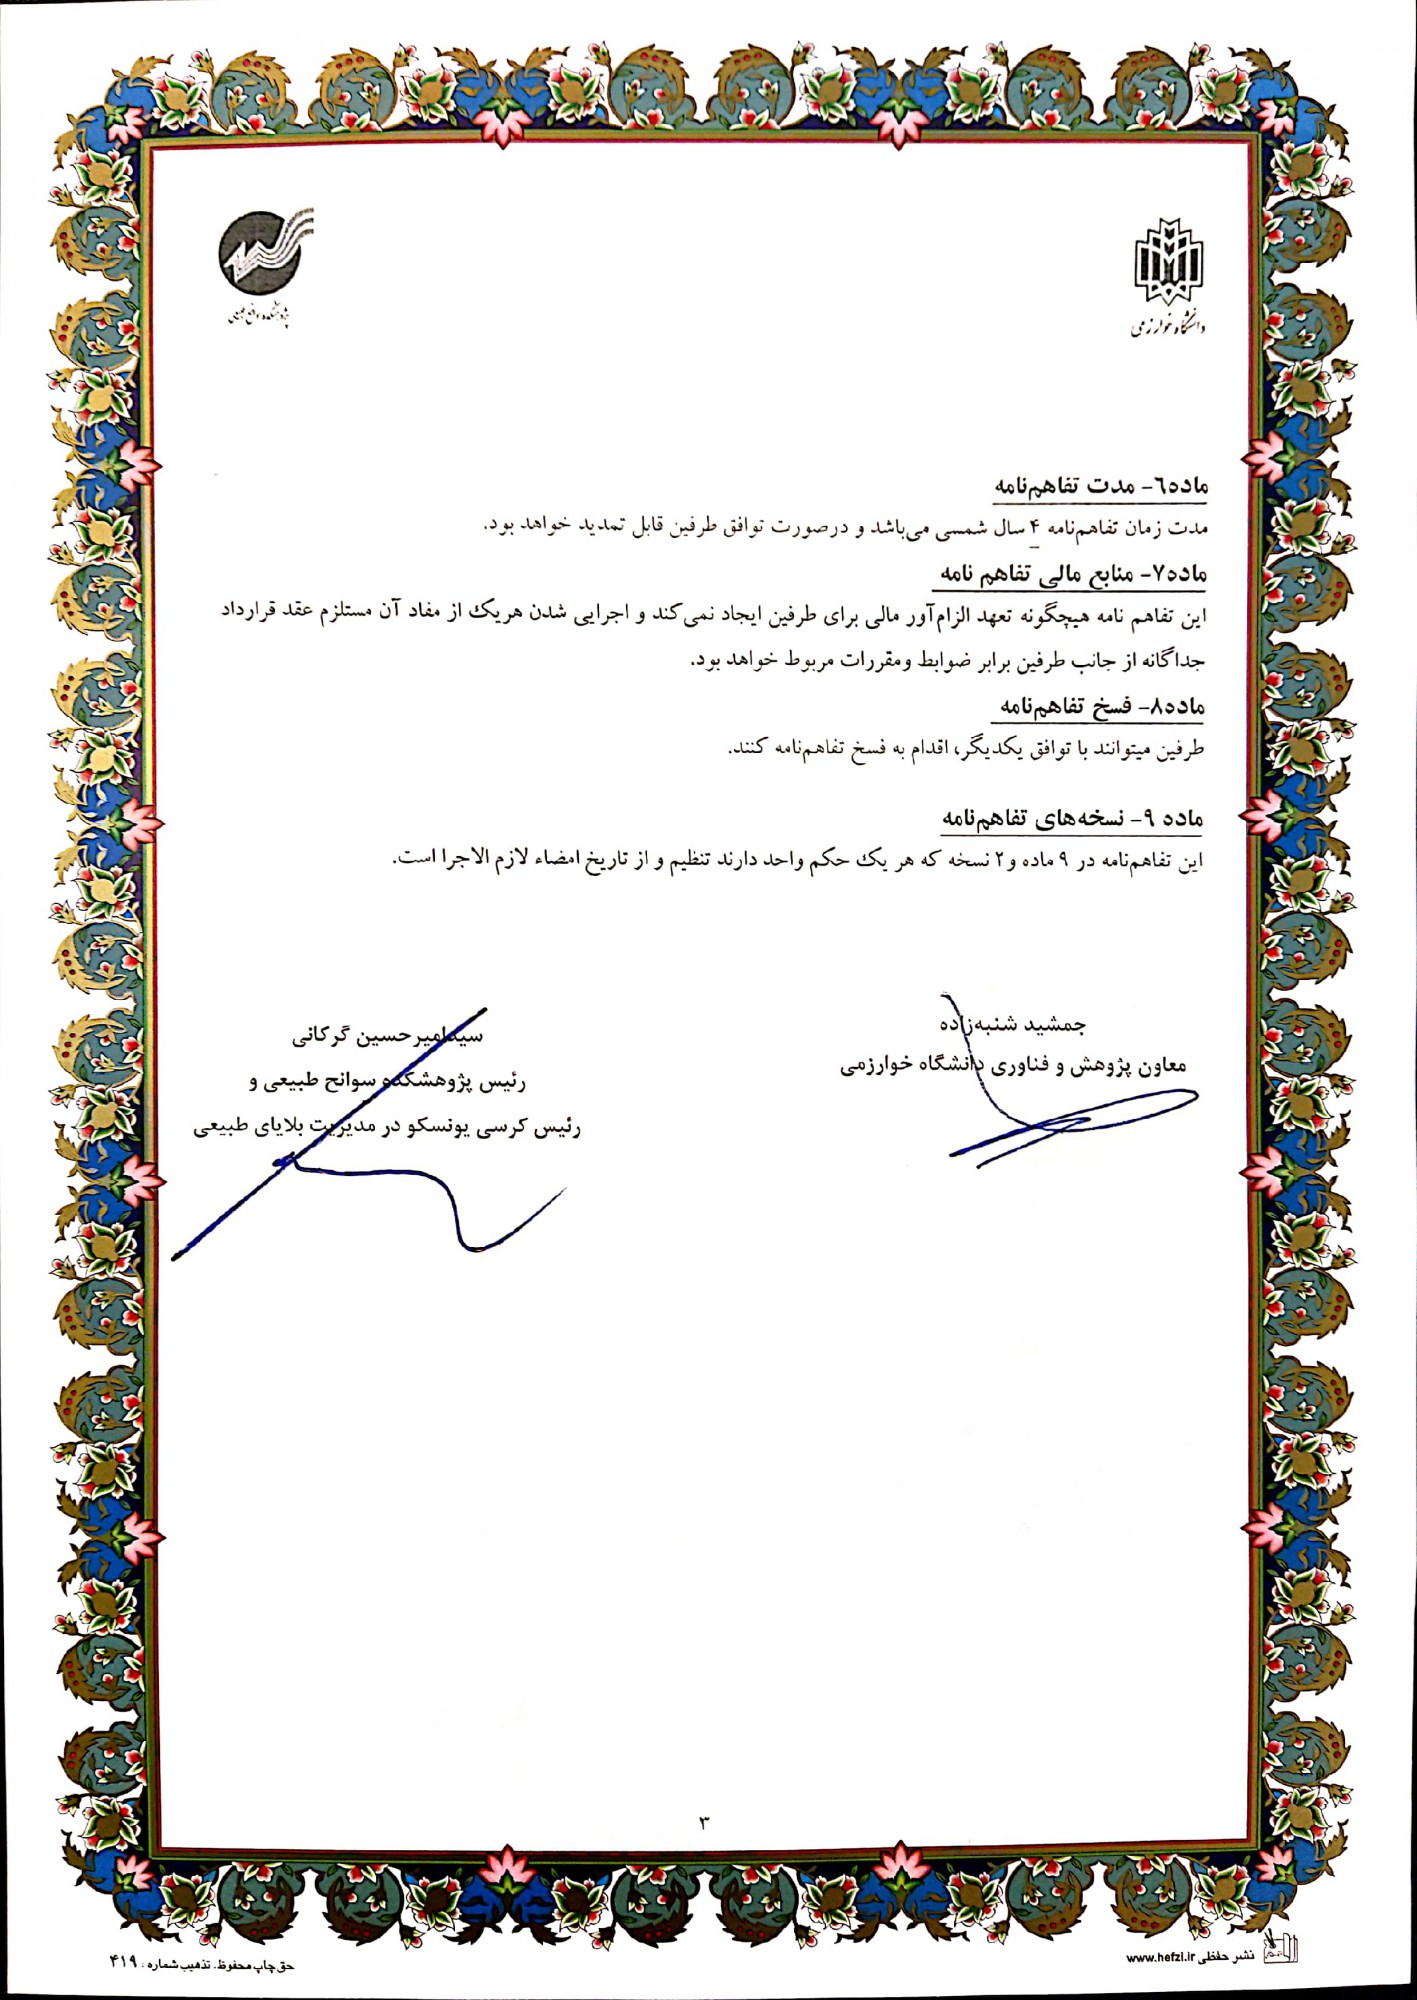 دانشگاه خوارزمی
پژوهشکده سوانح طبیعی
ماده٦- مدت تفاهم‌نامه
مدت زمان تفاهم‌نامه ۴ سال شمسی می‌باشد و درصورت توافق طرفین قابل تمدید خواهد بود.
ماده۷- منابع مالی تفاهم نامه
این تفاهم نامه هیچگونه تعهد الزام‌آور مالی برای طرفین ایجاد نمی‌کند و اجرایی شدن هریک از مفاد آن مستلزم عقد قرارداد
جداگانه از جانب طرفین برابر ضوابط ومقررات مربوط خواهد بود.
ماده۸- فسخ تفاهم‌نامه
طرفین میتوانند با توافق یکدیگر، اقدام به فسخ تفاهم‌نامه کنند.
ماده ۹- نسخه‌های تفاهم‌نامه
این تفاهم‌نامه در ۹ ماده و۲ نسخه که هر یک حکم واحد دارند تنظیم و از تاریخ امضاء لازم الاجرا است.
جمشید شنبه‌زاده
معاون پژوهش و فناوری دانشگاه خوارزمی
سیدامیرحسین گرکانی
رئیس پژوهشکده سوانح طبیعی و
رئیس کرسی یونسکو در مدیریت بلایای طبیعی
۳
نشر حفظی www.hefzi.ir
حق چاپ محفوظ. تذهیب شماره: ۴۱۹